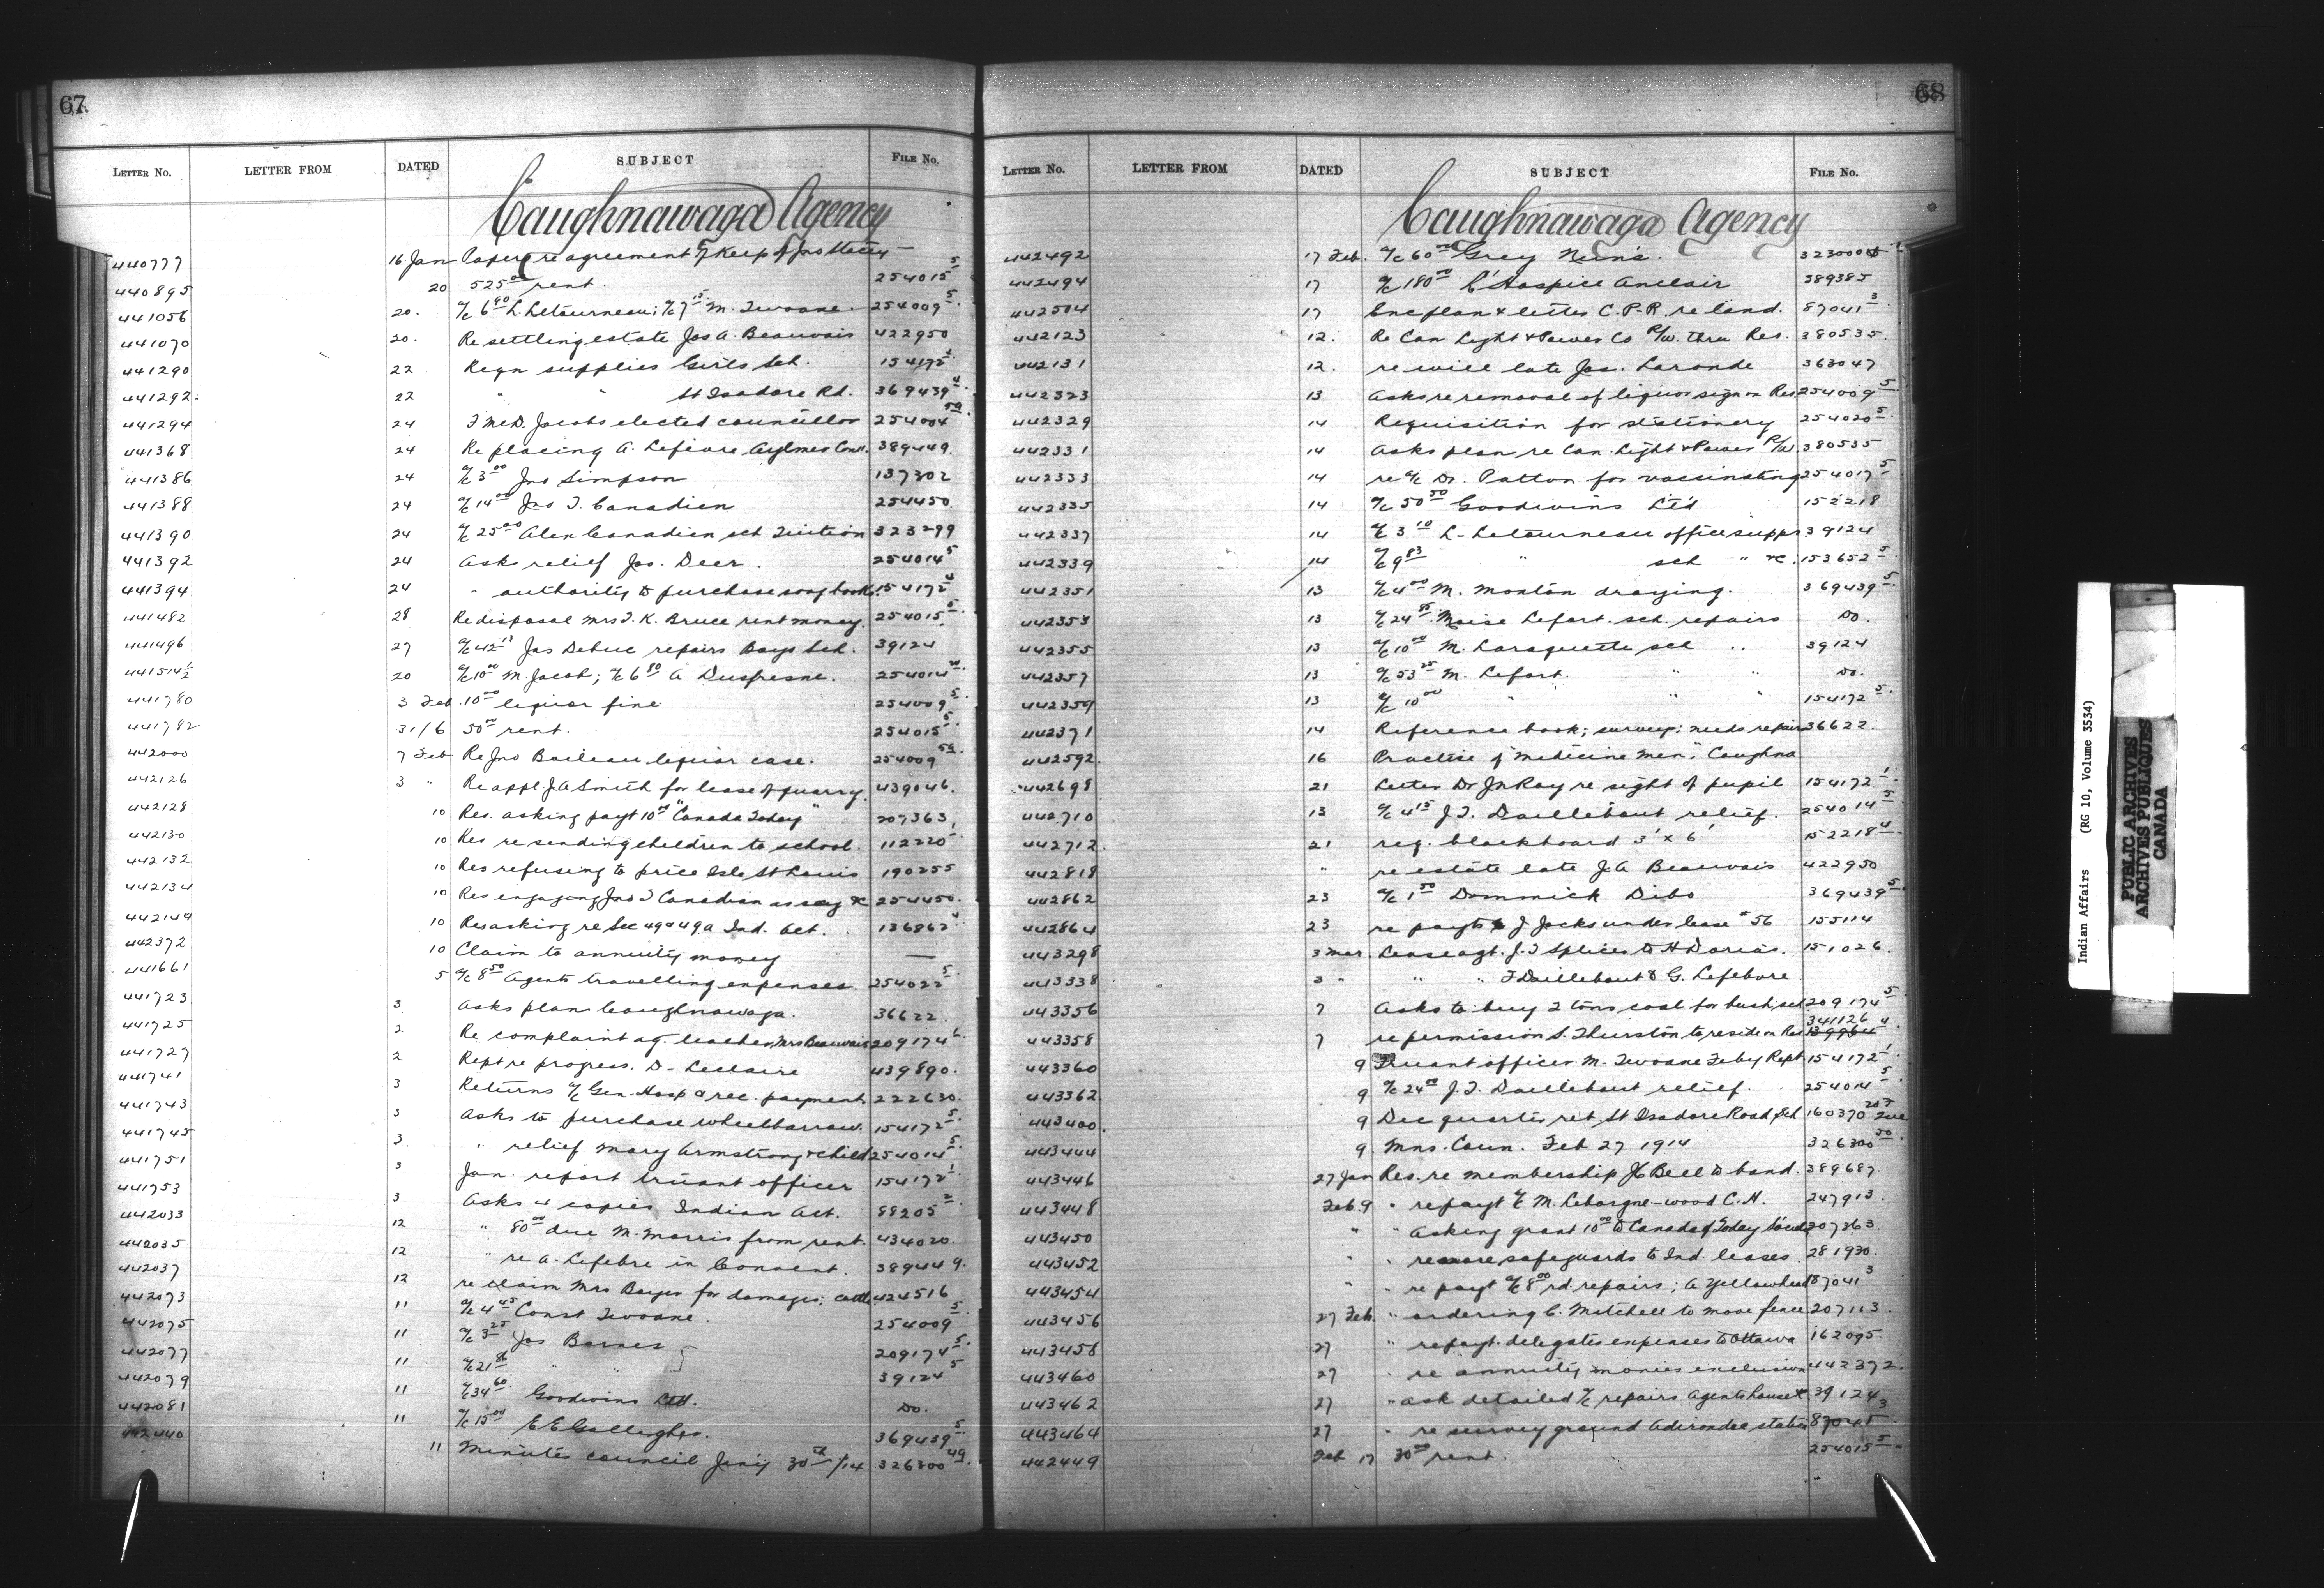 67
LETTER NO. LETTER FROM DATED SUBJECT FILE NO.
Caughnawaga Agency
440777 16 Jan Papers re agreement Keep of Jno Stacey —
440895 20 525 00 rent. 254015 5
441056 20. a/c 6 80 L. Letourneau; a/c 7 15 M. Twoane. 254009 5.
441070 20. Re settling estate Jos A. Beauvais 422950
441290 22 Reqn supplies Girls Sch. 154172 4.
441292. 22 " " St Isadore Rd. 369439 4.
441294 24 F McD. Jacobs elected councillor 254004 5a.
441368 24 Re placing A. Lefevre Aylmer Conv. 389449.
441386 24 a/c 3 00 Jno Simpson 137302
441388 24 a/c 14 00 Jno T. Canadien 254450
441390 24 a/c 25 00 Alex Canadien sch Tuition 323299
441392 24 Asks relief Jos. Deer. 254014 5
441394 24 " authority to purchase song books. 154172 4
441482 28 Re disposal Mrs J. K. Bruce rent money. 254015 5.
441496 27 a/c 42 Jas Debuc repairs Boys Sch. 39124
441514 1/2 20 a/c 10 00 M. Jacob; a/c 6 80 A Dufresne. 254014
441780 3 Feb. 10 00 liquor fine 254009 5.
441782 31/6 50 00 rent. 254015 5.
442000 7 Feb Re Jno Boileau liquor case. 254009 5a.
442126 3 " Re appl. J A Smith for lease of quarry. 439046.
442128 10 Res. asking payt 10 00 "Canada Today" 207363,
442130 10 Res re sending children to school. 112220
442132 10 Res refusing to price Isle St Louis 190255
442134 10 Res engaging Jno T Canadian as secy &c 254450.
442144 10 Res asking re Sec 49 & 49a Ind. Act. 136862 4
442372 10 Claim to annuity money —
441661 5 a/c 8 50 Agents travelling expenses. 254022 5.
441723. 3 Asks plan Caughnawaga. 36622.
441725 2 Re complaint ag. teacher, Mrs Beauvais 209174 6.
441727 2 Rept re progress. D. Leclaire 439890.
441741 3 Returns a/c Gen. Hosp & rec. payment 222630.
441743 3 Asks to purchase wheelbarrow. 154172 5.
441745 3. " relief Mary Armstrong & child 254014 5.
441751 3 Jan. report truant officer 154172 1
441753 3 Asks 4 copies Indian Act. 88205 2.
442033 12 " 80 00 due M. Morris from rent. 434020.
442035 12 " re A. Lefebre in Convent. 389449.
442037 12 re claim Mrs Boyer for damages; cattle 424516
442073 11 a/c 4 45 Const Twoane. 254009 5.
442075 11 a/c 3 25 Jos Barnes 209174 5.
442077 11 a/c 21 86 " " 39124 5
442079 11 a/c 34 60 Goodwins Ltd. Do.
442081 11 a/c 15 00 E E Gallagher. 369439 5.
442440 11 Minutes council Jan'y 30th /14 326300 49.
68
LETTER NO. LETTER FROM DATED SUBJECT FILE NO.
Caughnawaga Agency
442492 17 Feb. a/c 60 00 Grey Nuns. 323000
442494 17 a/c 180 00 L'Hospice Auclair 389385
442504 17 Enc plan & letter C.P.R. re land. 87041 3
442123 12. Re Can Light & Power Co R/w. thru Res. 380535.
442131 12. re will late Jas. Laronde 363047
442323 13 Asks re removal of liquor sign on Res 254009 5.
442329 14 Requisition for stationery 254020 5.
442331 14 Asks plan re Can. Light & Power R/w. 380535
442333 14 re a/c Dr. Patton for vaccinating 254017 5
442335 14 a/c 50 50 Goodwins Ltd 152218
442337 14 a/c 3 10 L. Letourneau office supps 39124
442339 14 a/c 9 83 " sch " &c. 153652 5.
442351 13 a/c 4 00 M. Monton draying. 369439 5.
442353 13 a/c 24 85 Moise Lefort. sch. repairs Do.
442355 13 a/c 10 00 M. Laraquette sch " 39124
442357 13 a/c 53 25 M. Lefort. " " Do.
442359 13 a/c 10 00 " " " 154172 5.
442371 14 Reference book; survey; needs repairs 36622.
442592. 16 Practise of "Medicine Men", Caughna
442698 21 Letter Dr Jn Roy re sight of pupil 154172 1.
442710 13 a/c 4 15 J. T. Daillebout relief. 254014 5
442712. 21 req. blackboard 3' x 6' 152218 4
442818 " re estate late J A Beauvais 422950
442862 23 a/c 1 50 Dominick Dibo 369439 5.
442864 23 re payt J Jacks under lease #56 155114
443298 3 Mar. Lease agt. J. T Splicer to H Darias. 151026.
443338 3 " " " F Daillebout & G. Lefebvre
443356 7 Asks to buy 2 tons coal for bush sch 209174 5.
443358 7 re permission S. Thurston to reside on Res 341126 139964 4.
443360 9 Truant officer M. Twoane Feby Rept 154172 1.
443362 9 a/c 24 00 J. T. Daillebout relief. 254014 5.
443400. 9 Dec quarter ret, St Isadore Road, Sch 160370
443444 9. Mns. Coun. Feb 27 1914 326300 50.
443446 27 Jan Res. re membership J C Bell to band. 389687.
443448 Feb. 9 " re payt a/c M. Lebargne-wood C.H. 247913.
443450 " " Asking grant 10 00 to Canada of Today 207363.
443452 " " re more safeguards to Ind. leases. 281930.
443454 " " re payt a/c 8 00 rd. repairs; a Yellowhead 87041 3
443456 27 Feb. " ordering C. Mitchell to move fence 207113.
443458 27 " re payt. delegates expenses to Ottawa 162095.
443460 27 " re annuity monies exclusion 442372.
443462 27 " ask detailed a/c repairs Agents house &c. 39124
443464 27 " re survey ground Adirondac station 87041 3
442449 Feb 17 30 00 rent. 254015 5
Indian Affairs (RG 10, Volume 3534)
PUBLIC ARCHIVES
ARCHIVES PUBLIQUES
CANADA